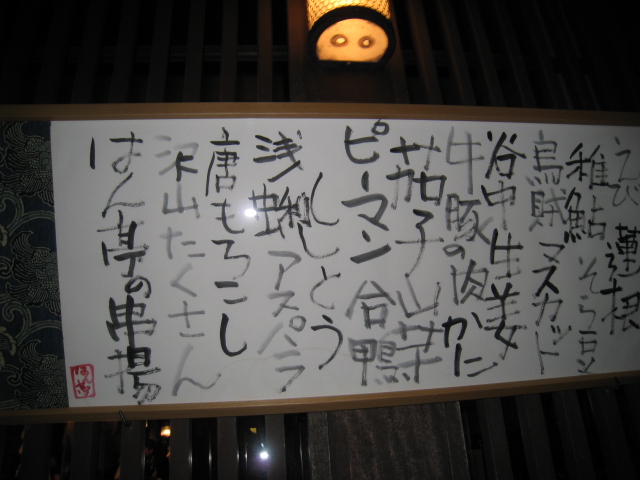 えび 蓮根
稚鮎 そら豆
烏賊 マスカット
谷中生姜
牛豚の肉 かに
茄子 山菜
ピーマン 合鴨
ししとう
浅蜊 アスパラ
唐もろこし
沢山たくさん
はん亭の串揚